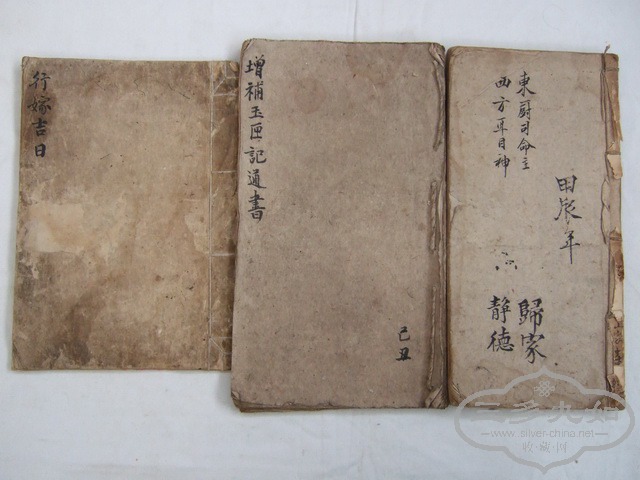 行嫁吉日
增補玉匣記通書
己丑
東厨司命主
西方耳目神
甲辰年
歸家
靜德
www.silver-china.net
收藏网